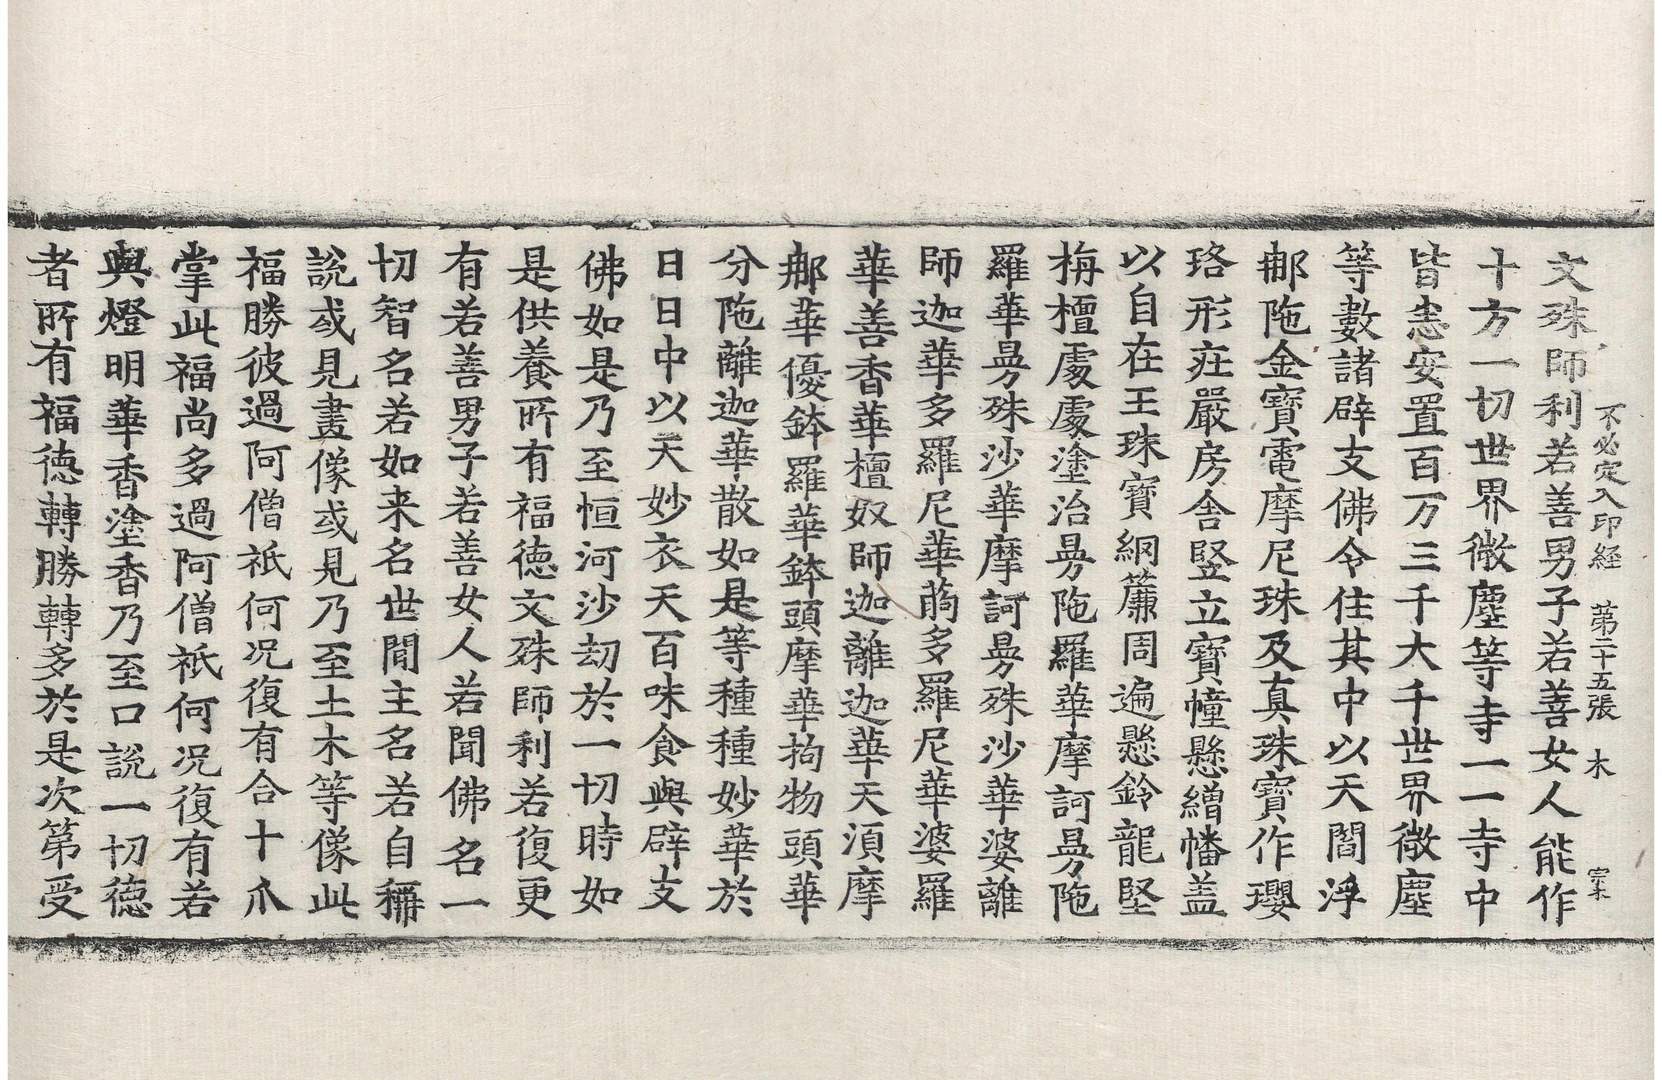 不必定入印経 第二十五張 木 宋木
文殊師利若善男子若善女人能作
十方一切世界微塵等寺一一寺中
皆悉安置百万三千大千世界微塵
等數諸辟支佛令住其中以天閻浮
那陁金寶電摩尼珠及真珠寶作瓔
珞形庄嚴房舍竪立寶幢懸繒幡盖
以自在王珠寶網簾周遍懸鈴龍堅
栴檀處處塗治曼陁羅華摩訶曼陁
羅華曼殊沙華摩訶曼殊沙華婆離
師迦華多羅尼華蔄多羅尼華婆羅
華善香華檀奴師迦離迦華天湏摩
那華優鉢羅華鉢頭摩華拘物頭華
分陁離迦華散如是等種種妙華於
日日中以天妙衣天百味食與辟支
佛如是乃至恒河沙劫於一切時如
是供養所有福徳文殊師利若復更
有若善男子若善女人若聞佛名一
切智名若如来名世間主名若自稱
說或見畫像或見乃至土木等像此
福勝彼過阿僧祇何況復有合十爪
掌此福尚多過阿僧祇何況復有若
與燈明華香塗香乃至口說一切徳
者所有福徳轉勝轉多於是次第受